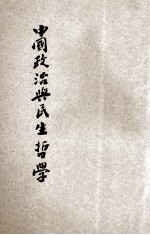 中國政治與民生哲學